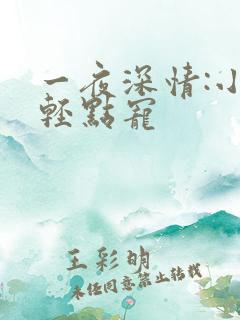 一夜深情:小
輕點寵
王彩明
未經同意禁止轉載